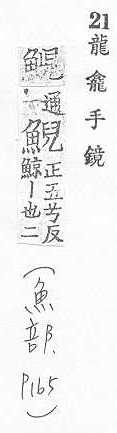 21 龍龕手鏡
通鯢正五兮反
鯨丨也二
(魚部, P165)